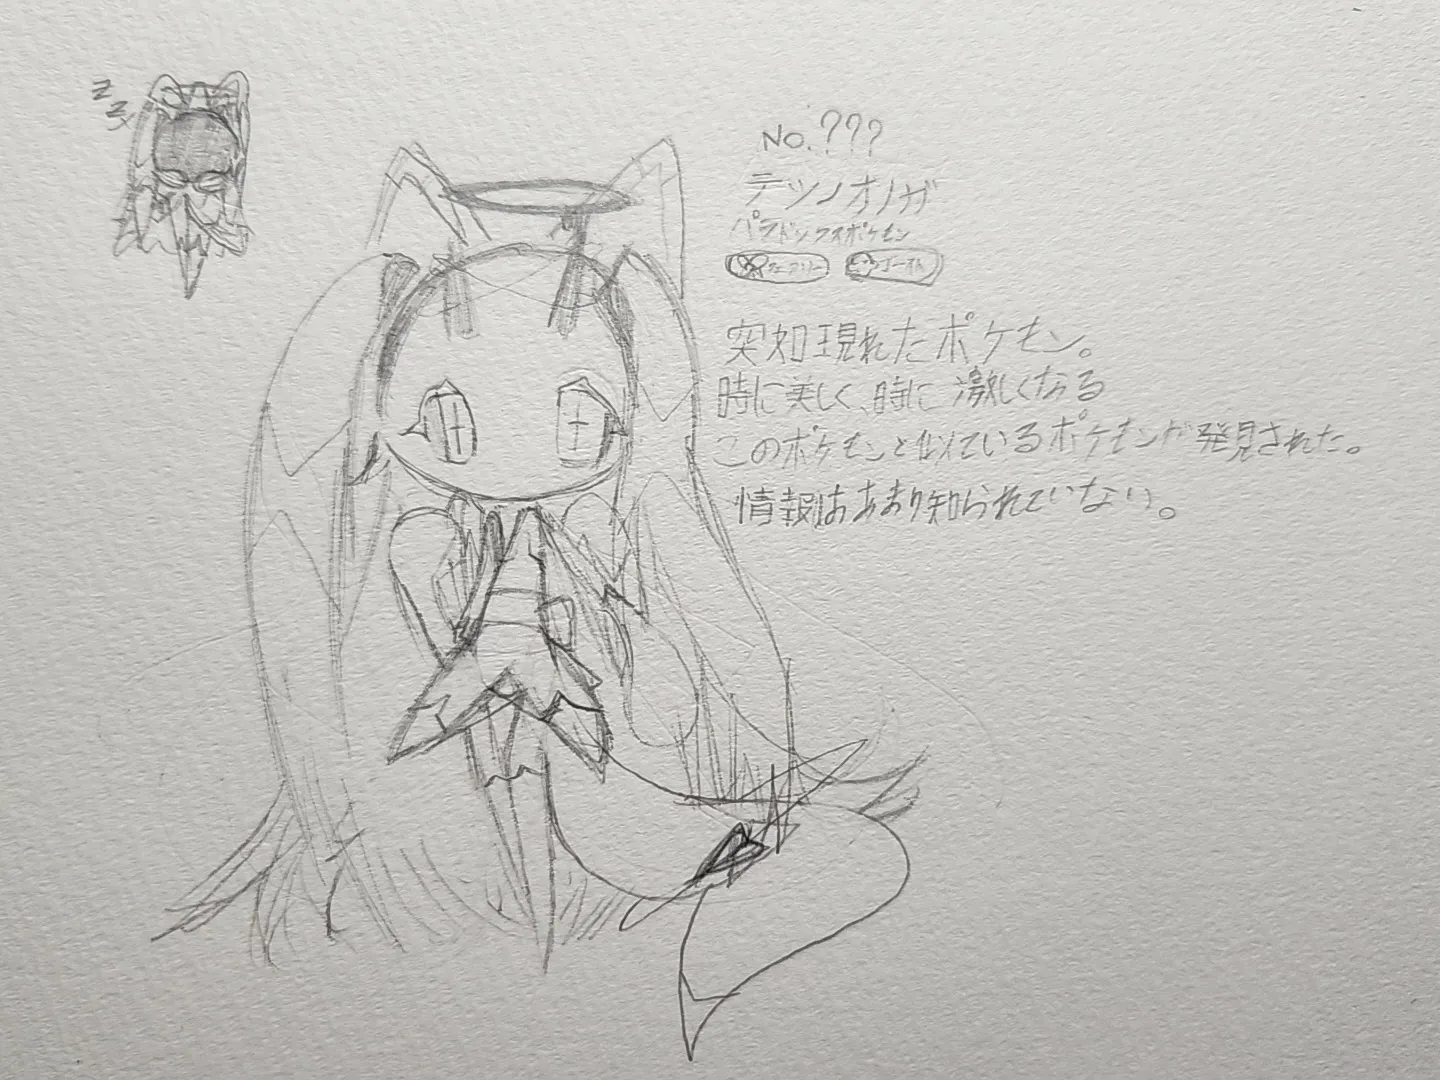 zz
No.???
テツノオノガ
パラドックスポケモン
フェアリー ゴースト
突如現れたポケモン。
時に美しく、時に激しくなる
このポケモンと似ているポケモンが発見された。
情報はあまり知られていない。